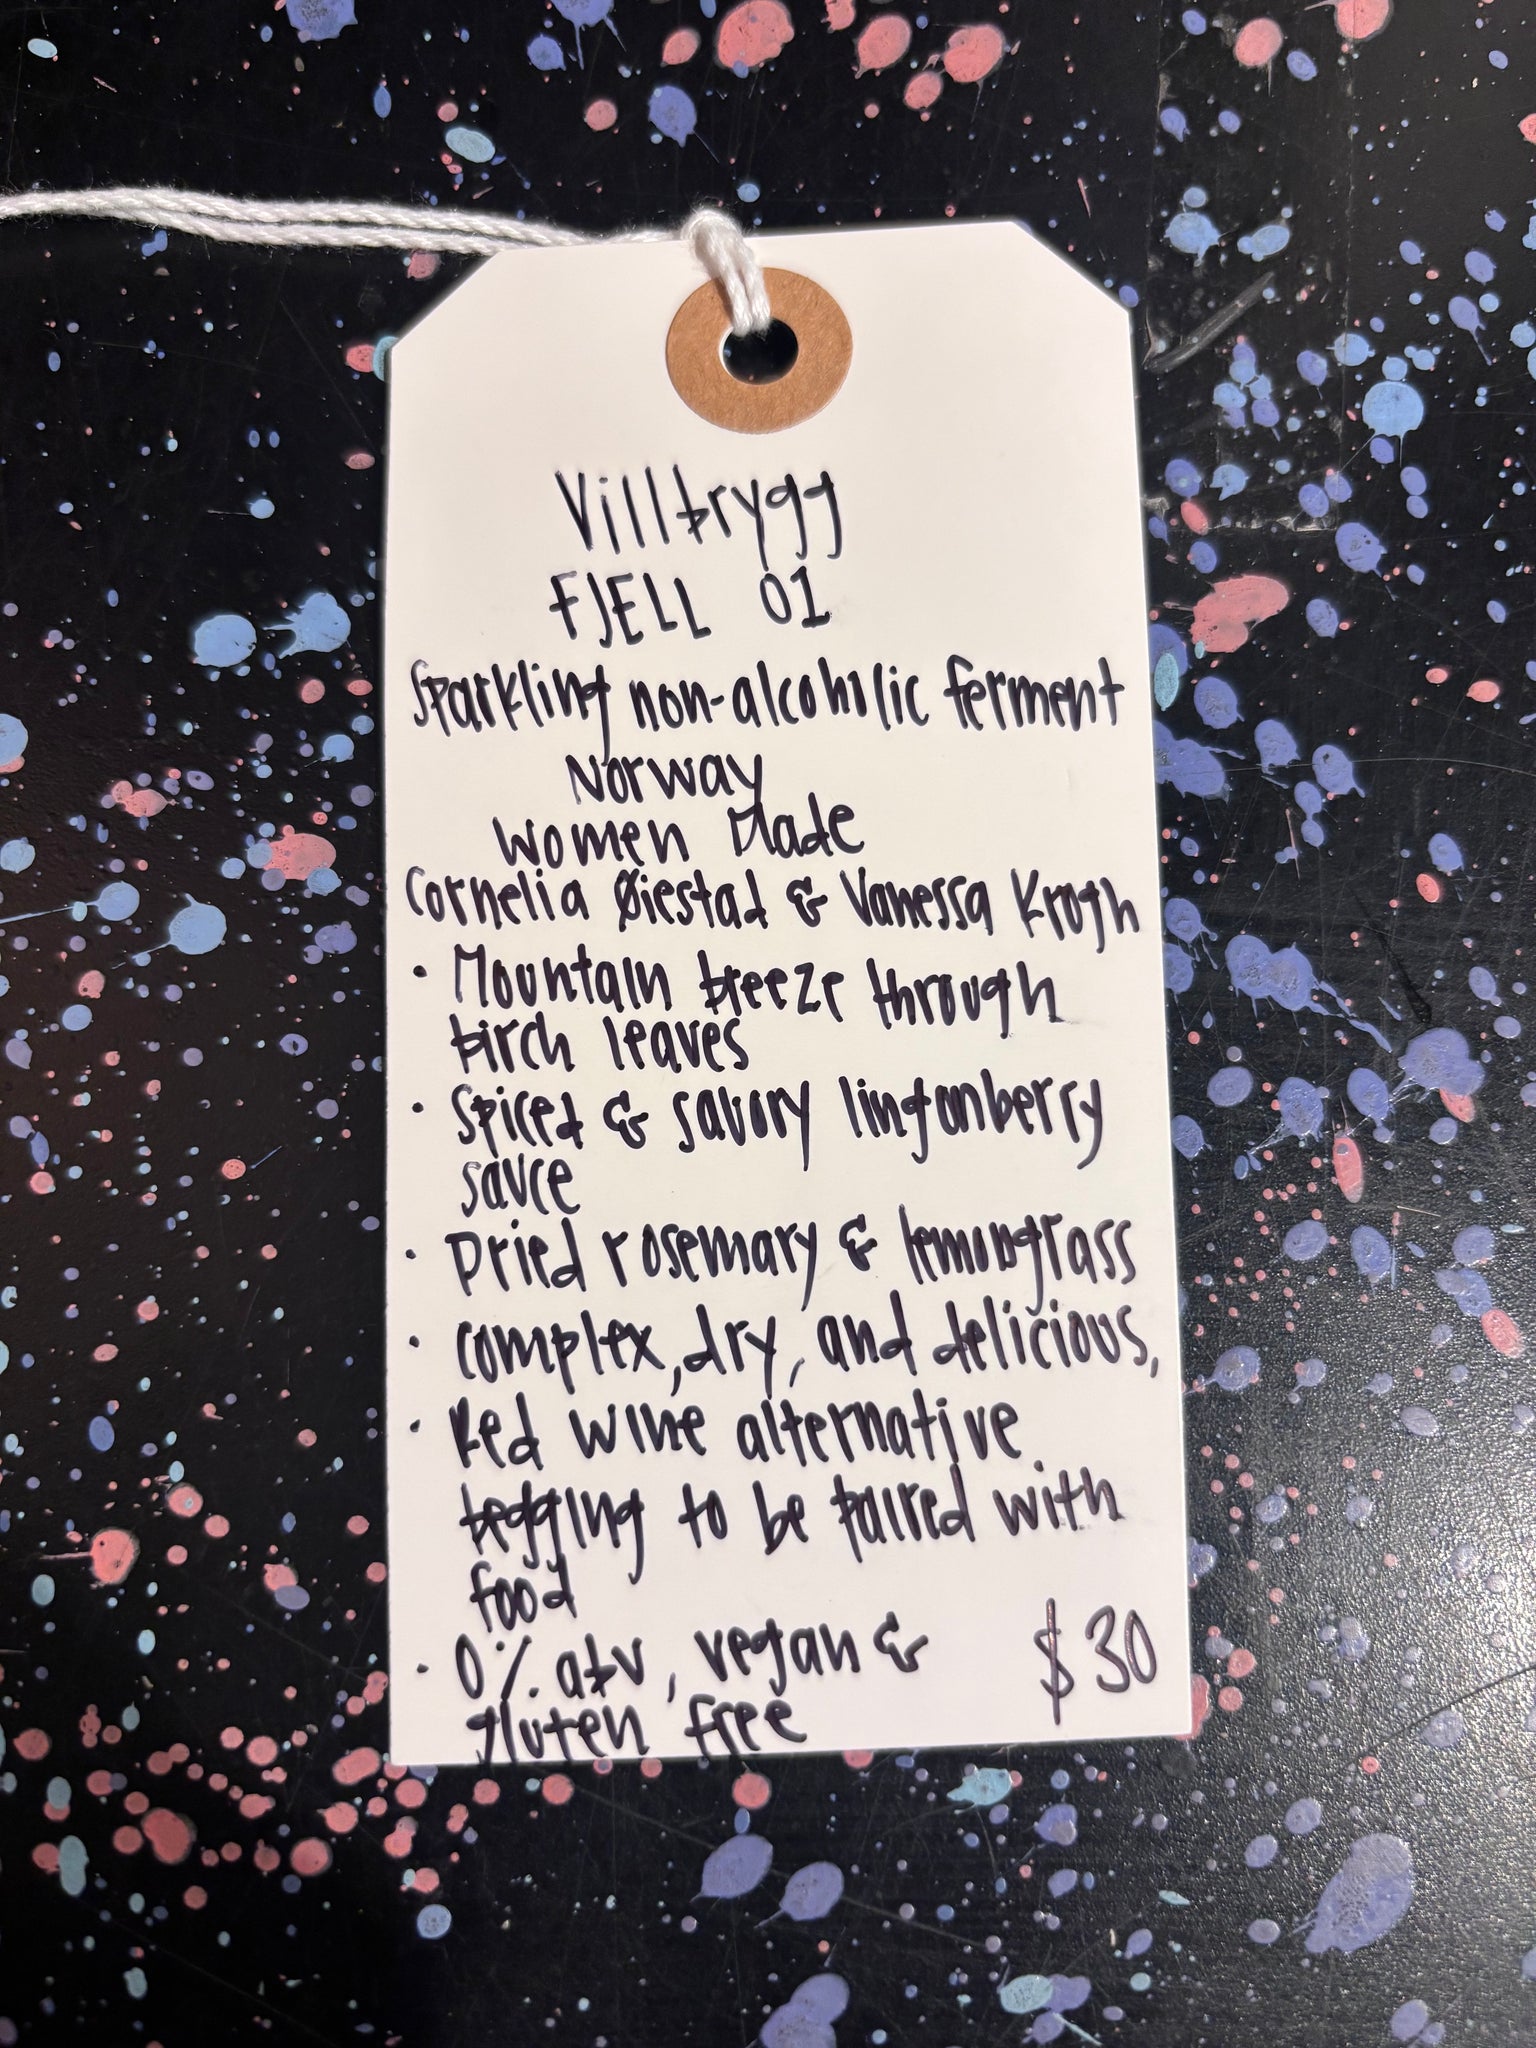 Villbrygg
FJELL 01
Sparkling non-alcoholic ferment
Norway
Women Made
Cornelia Øiestad & Vanessa Krogh
• Mountain breeze through
birch leaves
• Spiced & savory lingonberry
sauce
• Dried rosemary & lemongrass
• complex, dry, and delicious,
• Red wine alternative
begging to be paired with
food
• 0% abv, vegan &
gluten free
$30